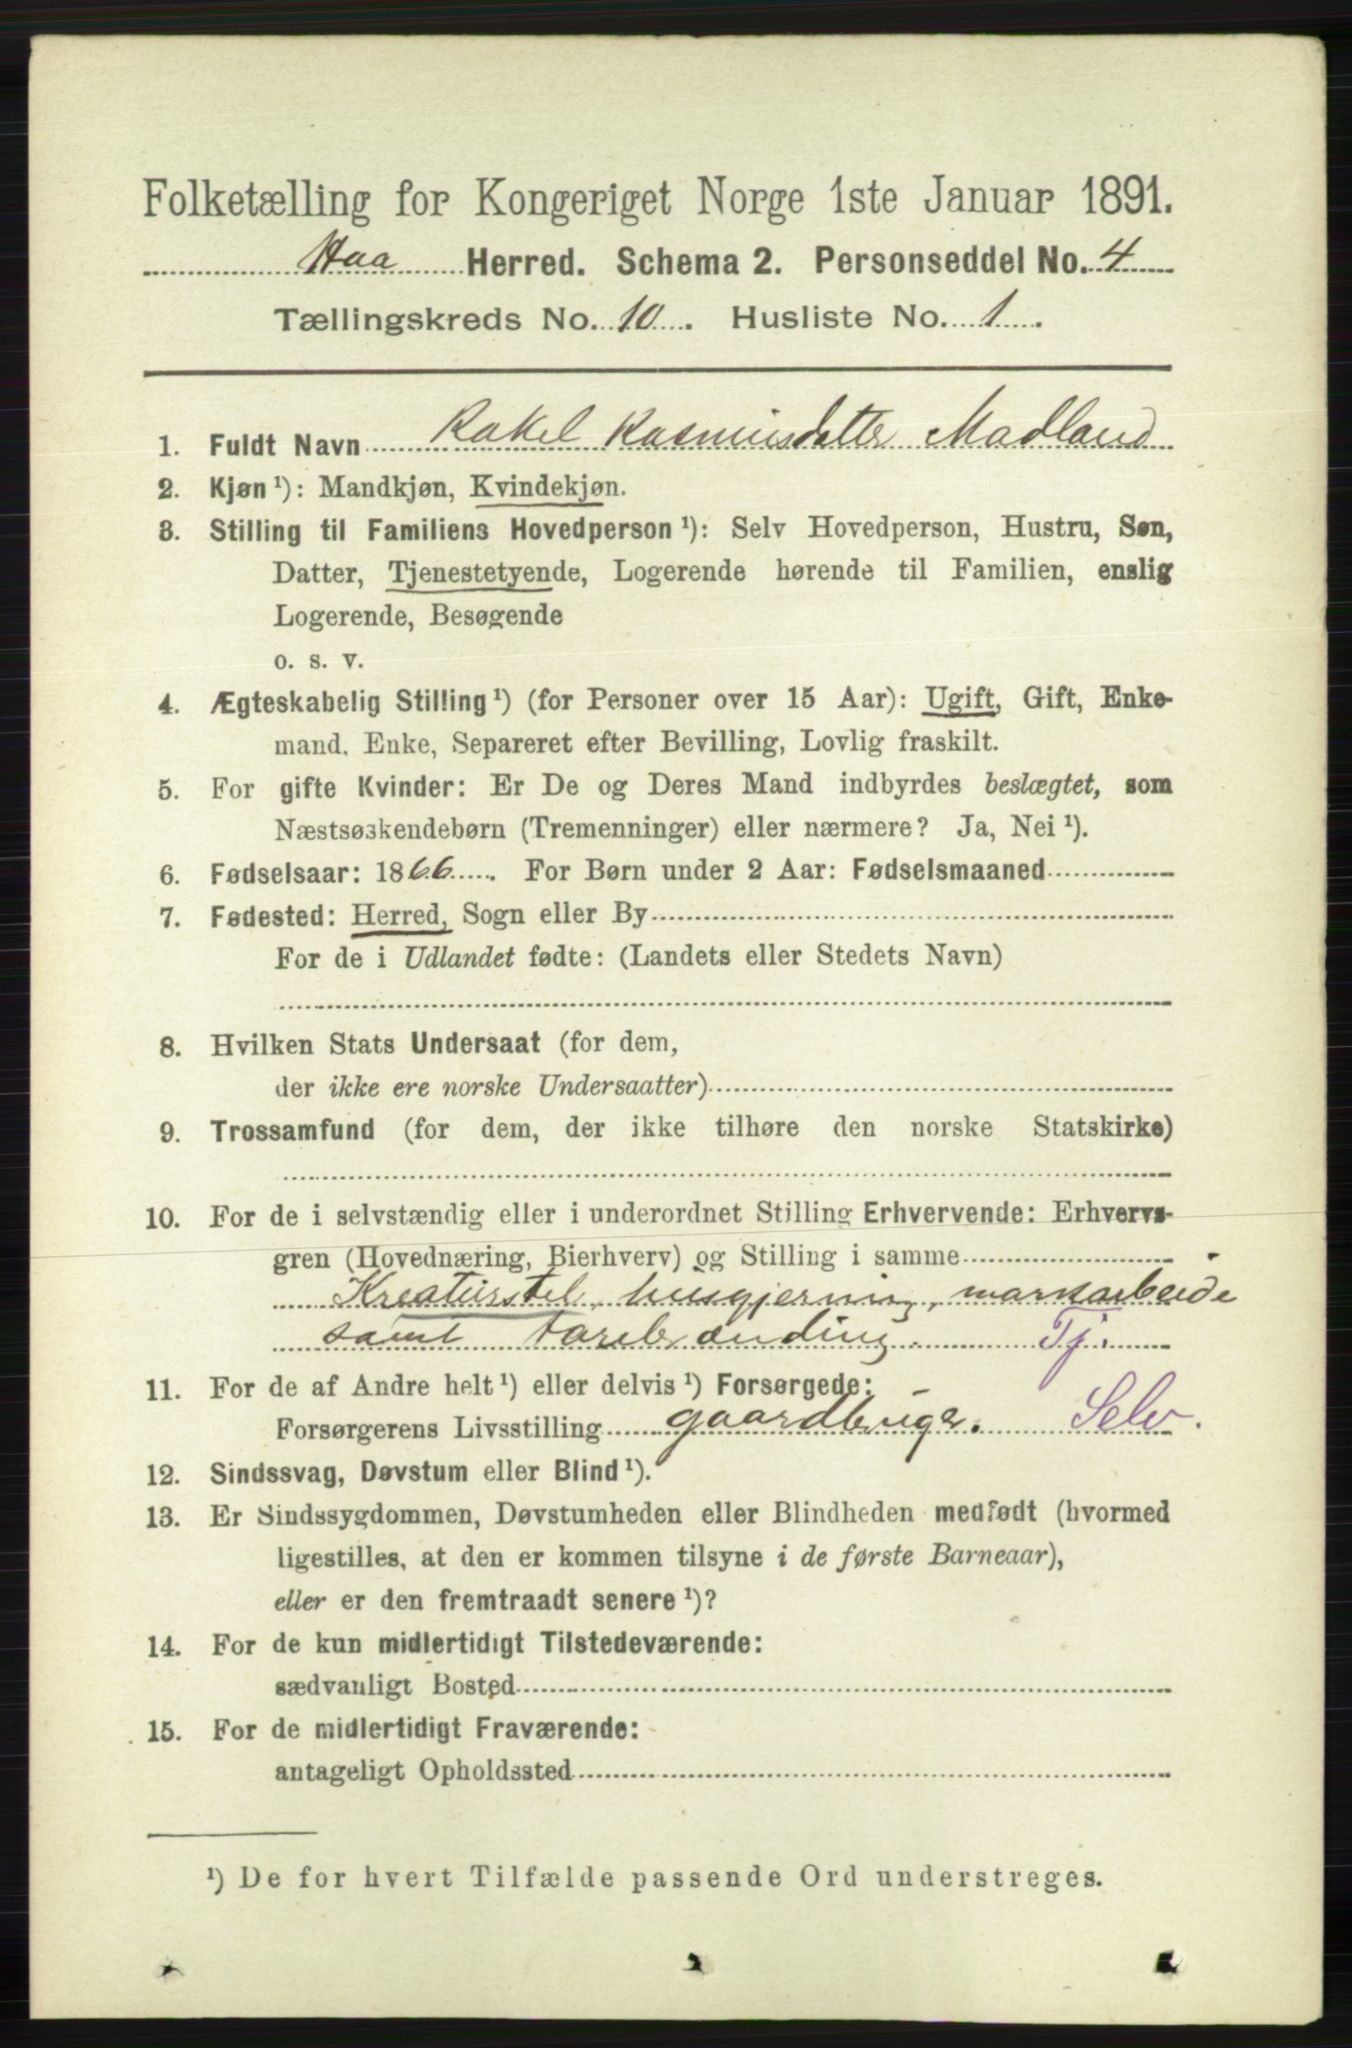 Folketælling for Kongeriget Norge 1ste Januar 1891.
Haa Herred. Schema 2. Personseddel No. 4
Tællingskreds No. 10. Husliste No. 1.
1. Fuldt Navn Rakel Rasmusdatter Madland
2. Kjøn ¹): Mandkjøn, Kvindekjøn.
3. Stilling til Familiens Hovedperson ¹): Selv Hovedperson, Hustru, Søn,
Datter, Tjenestetyende, Logerende hørende til Familien, enslig
Logerende, Besøgende
o. s. v.
4. Ægteskabelig Stilling ¹) (for Personer over 15 Aar): Ugift, Gift, Enke-
mand, Enke, Separeret efter Bevilling, Lovlig fraskilt.
5. For gifte Kvinder: Er De og Deres Mand indbyrdes beslægtet, som
Næstsøskendebørn (Tremenninger) eller nærmere? Ja, Nei ¹).
6. Fødselsaar: 1866. For Børn under 2 Aar: Fødselsmaaned
7. Fødested: Herred, Sogn eller By
For de i Udlandet fødte: (Landets eller Stedets Navn)
8. Hvilken Stats Undersaat (for dem,
der ikke ere norske Undersaatter)
9. Trossamfund (for dem, der ikke tilhøre den norske Statskirke)
10. For de i selvstændig eller i underordnet Stilling Erhvervende: Erhvervs-
gren (Hovednæring, Bierhverv) og Stilling i samme
Kreaturstel, husgjerning, markarbeide
samt tarebrænding. Tj.
11. For de af Andre helt ¹) eller delvis ¹) Forsørgede:
Forsørgerens Livsstilling gaardbruger. Selv.
12. Sindssvag, Døvstum eller Blind ¹).
13. Er Sindssygdommen, Døvstumheden eller Blindheden medfødt (hvormed
ligestilles, at den er kommen tilsyne i de første Barneaar),
eller er den fremtraadt senere ¹)?
14. For de kun midlertidigt Tilstedeværende:
sædvanligt Bosted
15. For de midlertidigt Fraværende:
antageligt Opholdssted
¹) De for hvert Tilfælde passende Ord understreges.